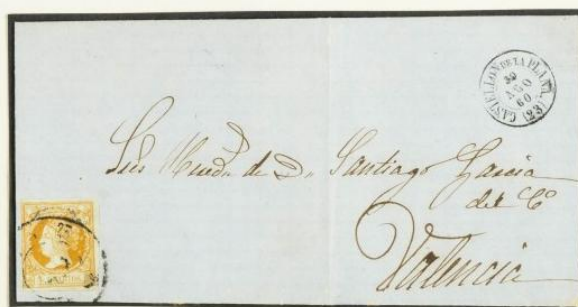 CASTELLON DE LA PLANA (23)
30
AGO
60
Sres Viuda de Dn Santiago Garcia
del Cº
Valencia